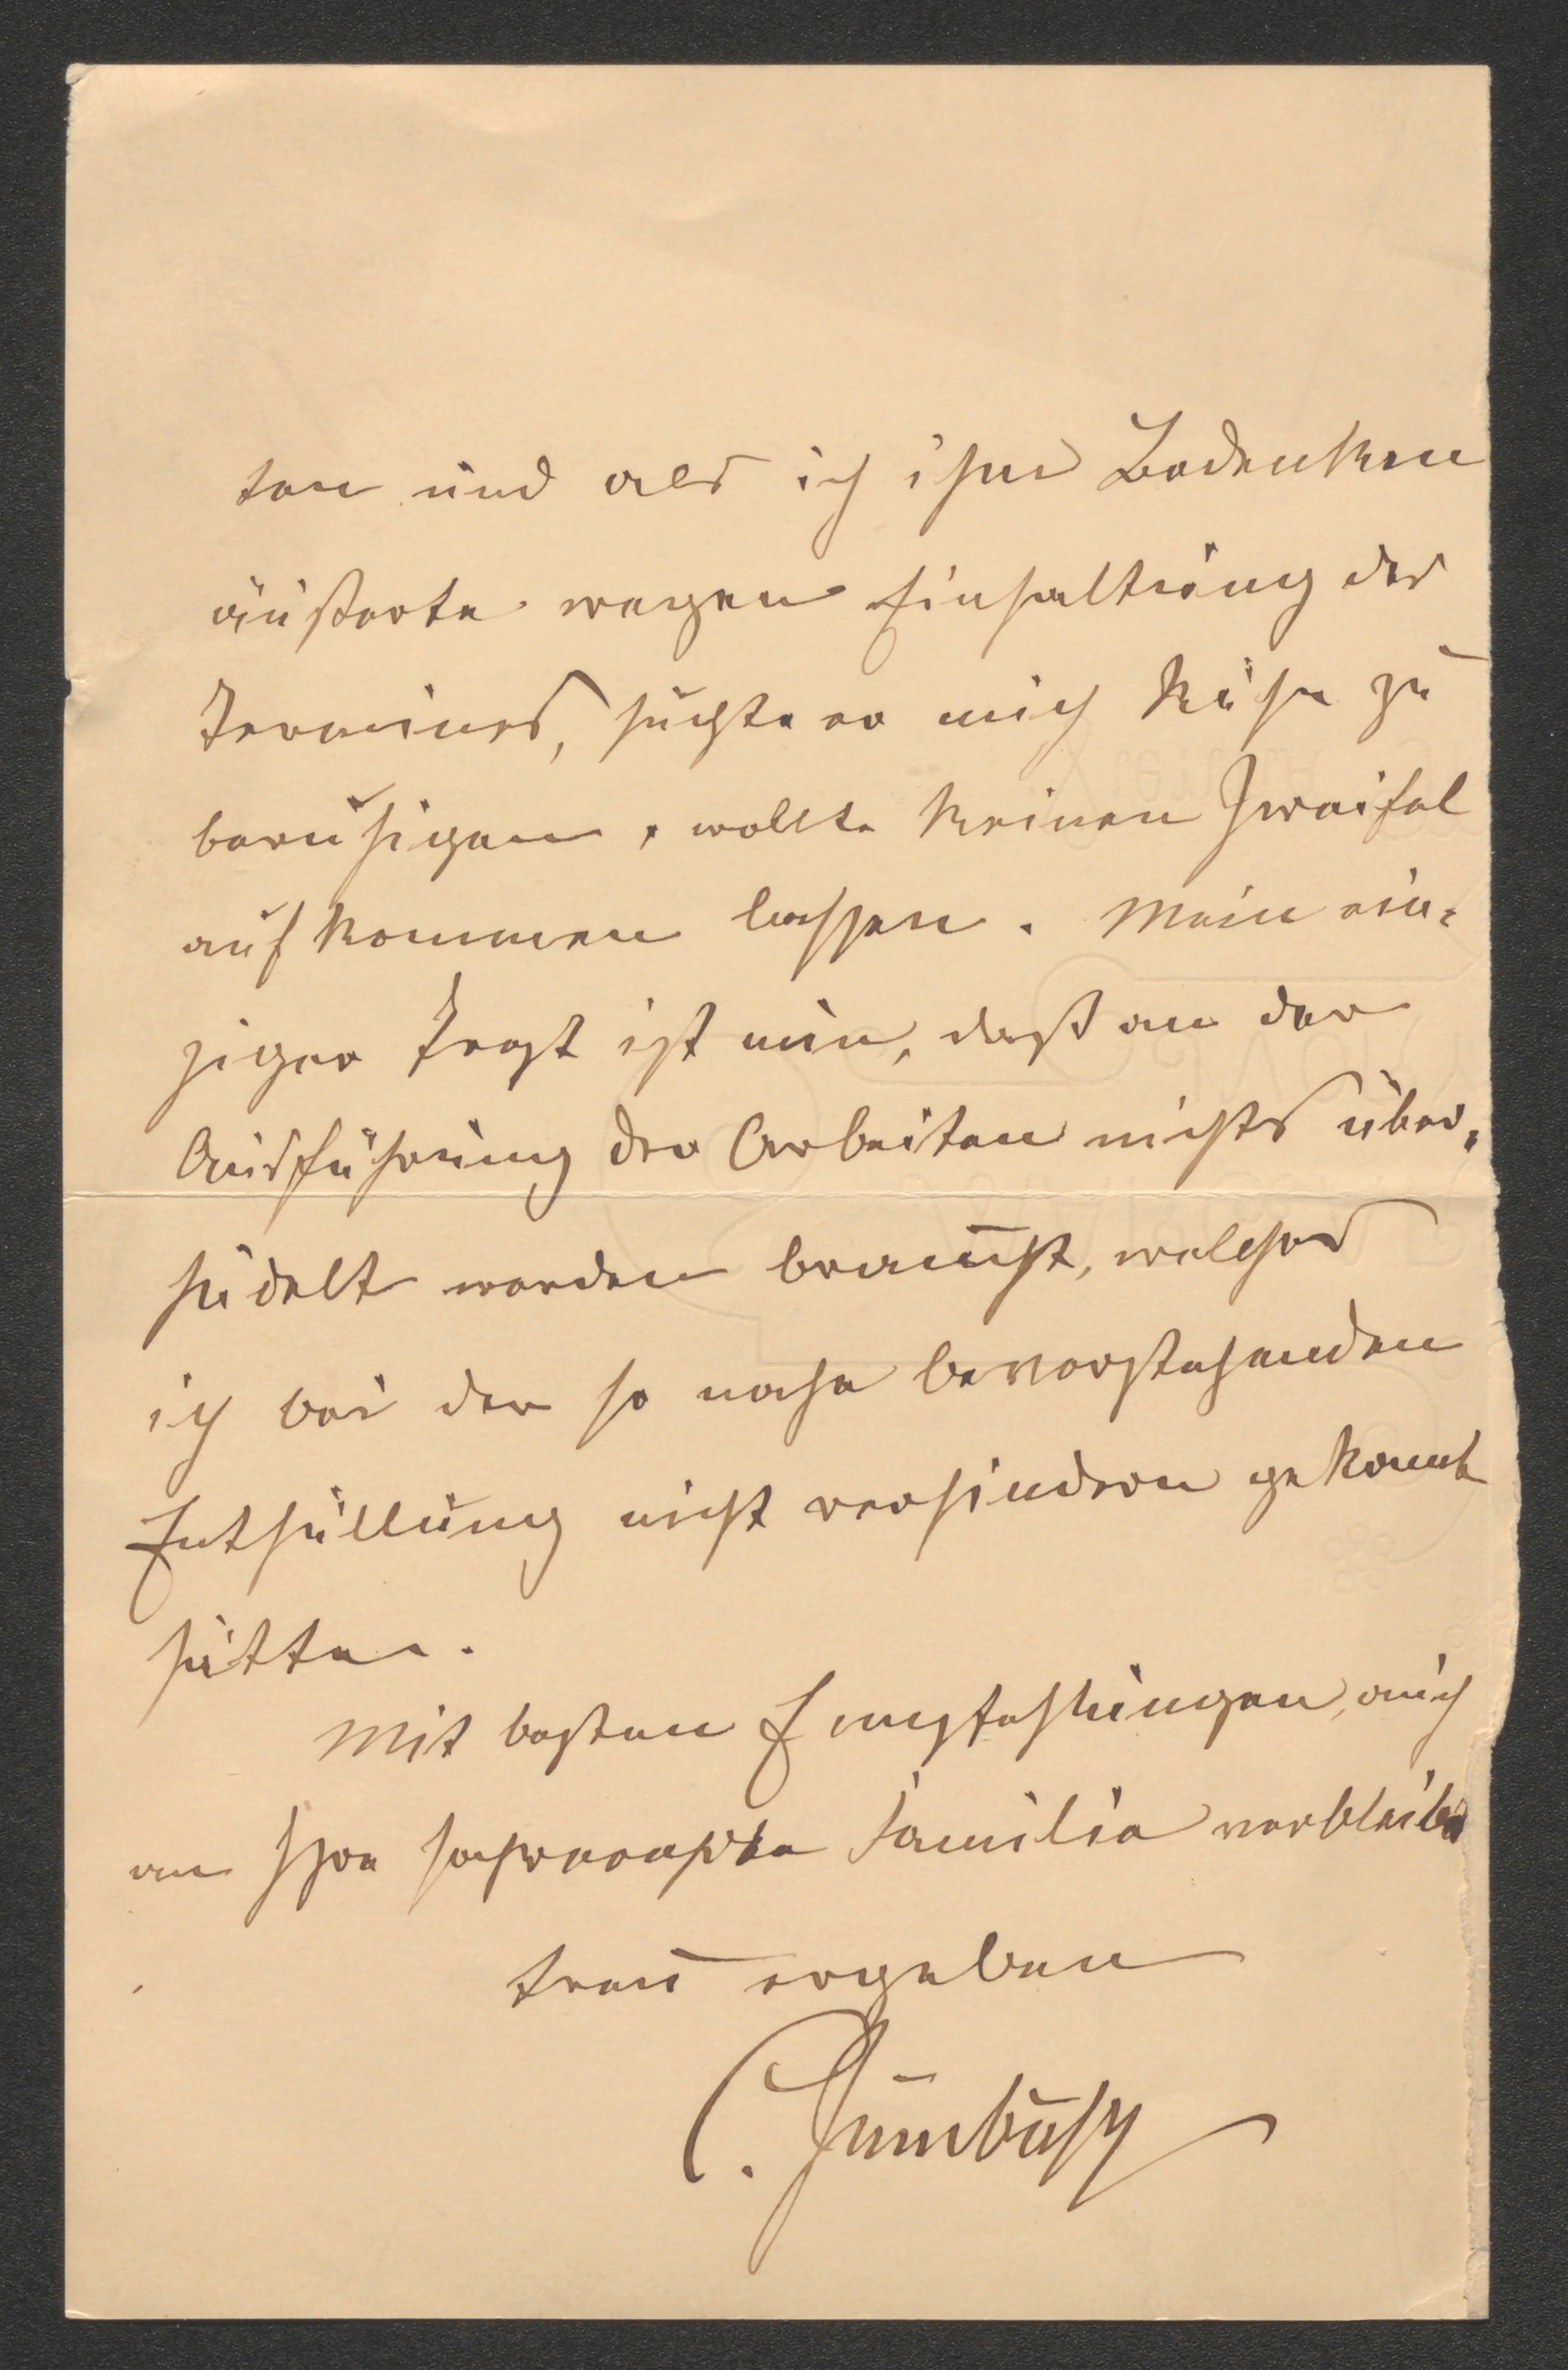 ten und als ich ihm Bedenken
äußerte wegen Einhaltung des
Termines, suchte er mich kühn zu
beruhigen, wollte keinen Zweifel
aufkommen lassen. Mein ein-
ziger Trost ist nun, daß an der
Ausführung der Arbeiten nichts über-
hudelt werden braucht, welches
ich bei der so nahe bevorstehenden
Enthüllung nicht verhindern gekonnt
hätte.
Mit besten Empfehlungen, auch
an Ihre hochverehrte Familie verbleibe
treu ergeben
C. Zumbusch